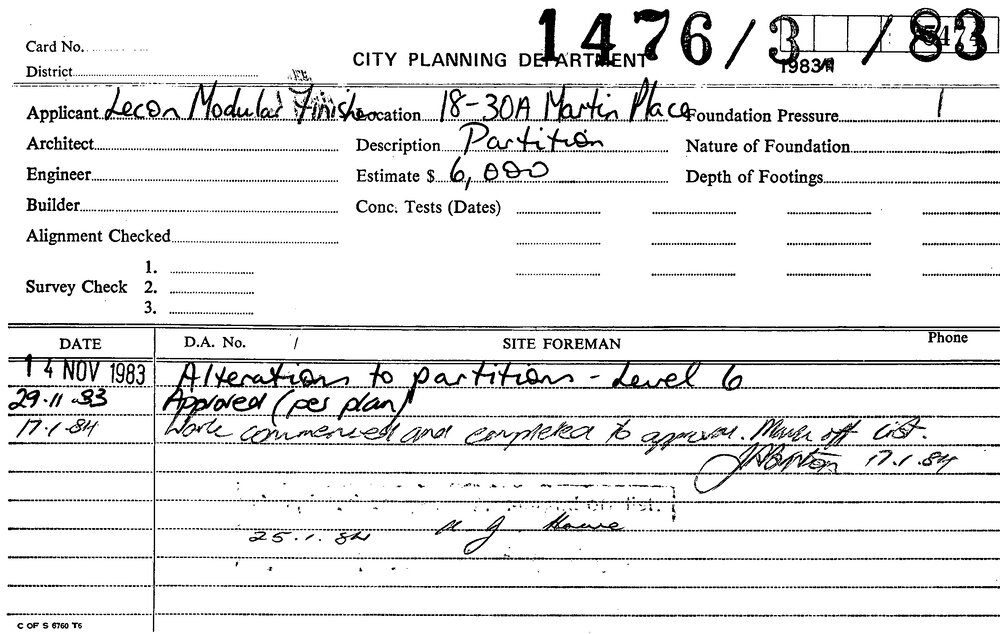 1476/3/83
Card No.
CITY PLANNING DEPARTMENT
1983
District
Applicant Lecon Modular Finishes Location 18-30A Martin Place Foundation Pressure
Architect Description Partition Nature of Foundation
Engineer Estimate $ 6,000 Depth of Footings
Builder Conc. Tests (Dates)
Alignment Checked
1.
Survey Check 2.
3.
DATE D.A. No. / SITE FOREMAN Phone
14 NOV 1983 Alterations to partitions - Level 6
29.11.83 Approved (per plan)
17.1.84 Work commenced and completed to approval. Mark off list.
17.1.84
25.1.84
C OF S 6760 T6